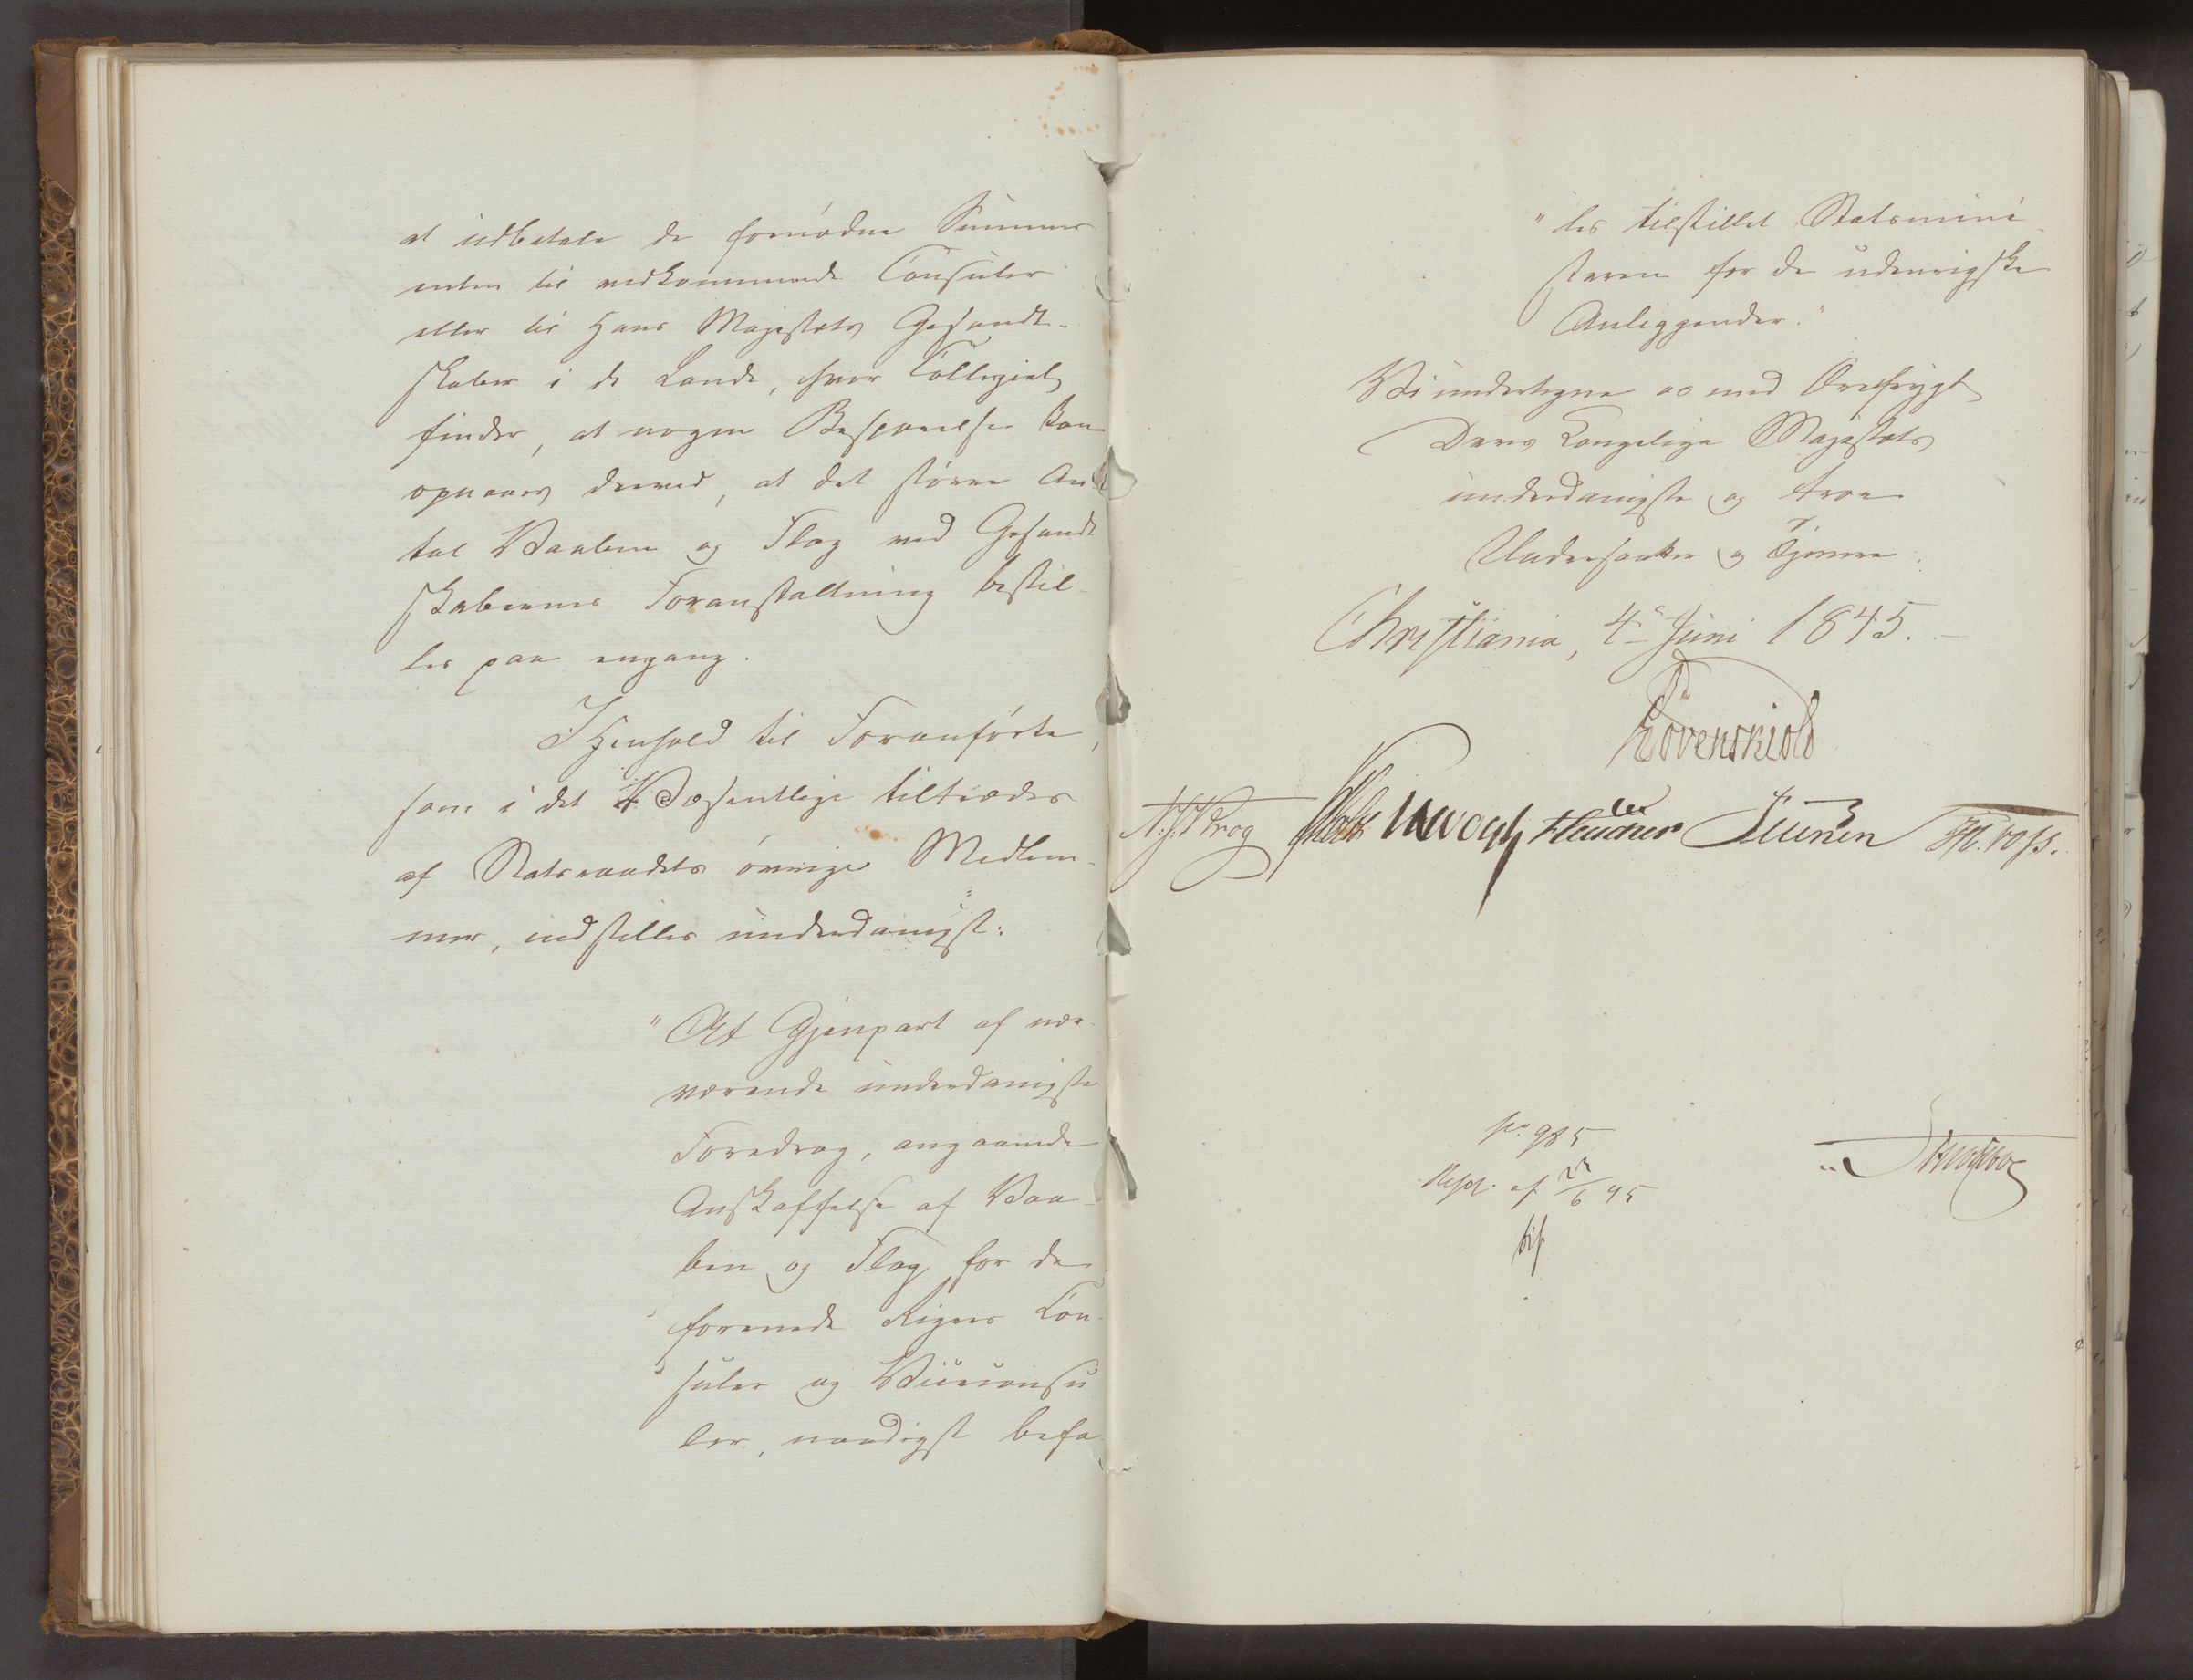 at udbetale de fornødne Summer
enten til vedkommende Consuler
eller til Hans Majestæts Gesandt-
skaber i de Lande, hvor Collegiet
finder, at nogen Besparelse kan
opnaaes derved, at det større An
tal Vaaben og Flag ved Gesandt
skabernes Foranstaltning bestil-
les paa engang.
I Henhold til Foranførte,
som i det Væsentlige tiltrædes
af Statsraadets øvrige Medlem-
mer, indstilles underdanigst:
"At Gjenpart af nær-
værende underdanigste
Foredrag, angaaende
Anskaffelse af Vaa-
ben og Flag for de
forenede Rigers Con-
suler og Viceconsu
ler, naadigst befa
"les tilstillet Statsmini-
steren for de udenrigske
Anliggender."
Vi undertegne os med Ærefrygt
Deres Kongelige Majestæts
underdanigste og troe
Undersaatter og Tjenere.
Christiania, 4de Juni 1845.
Løvenskiold
Krog Holst Vogh Petersen
No. 985
Resol. af 23/6 45